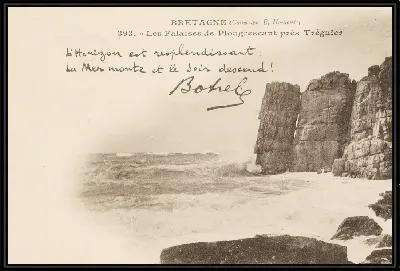 BRETAGNE
393. - Les Falaises de Plougrescant près Tréguier
L'Horizon est resplendissant:
La Mer monte et le Soir descend!
Botrel